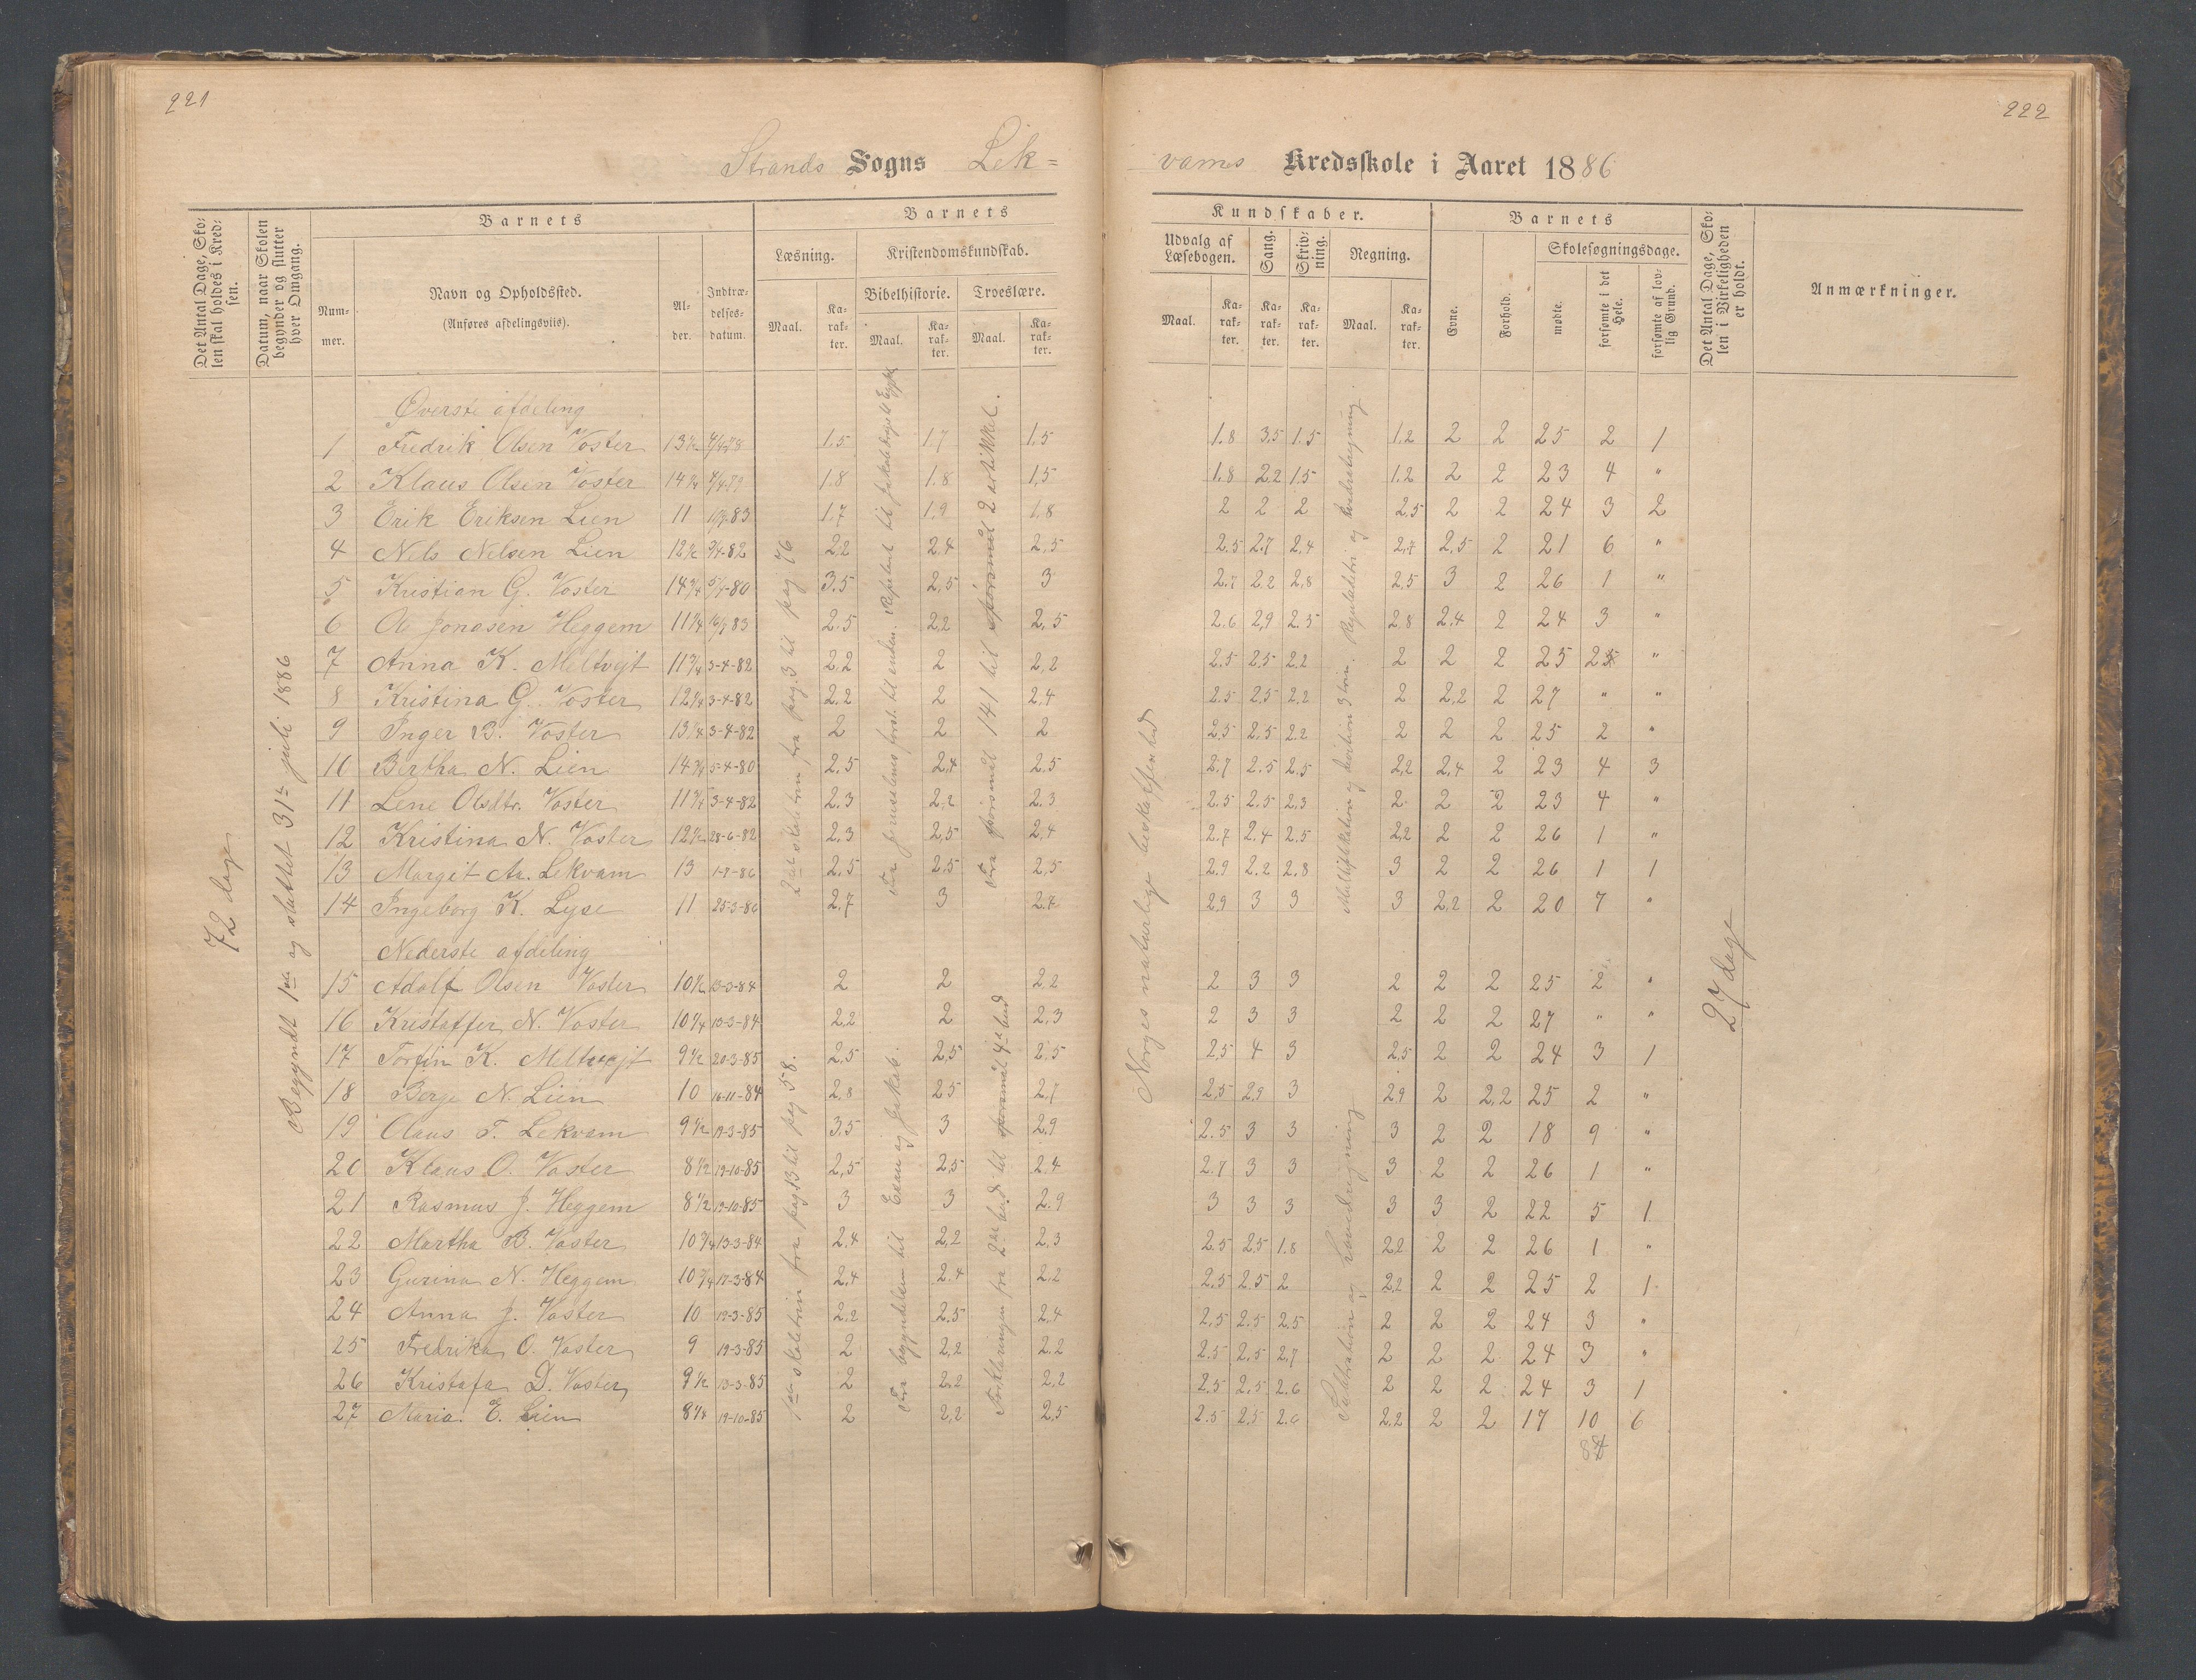 221
222
Strands Sogns Lek=
vams Kredsskole i Aaret 1886
Det Antal Dage, Skolen skal holdes i Kredsen.
Datum, naar Skolen begynder og slutter hver Omgang.
Barnets
Nummer.
Navn og Opholdssted.
(Anføres afdelingsviis).
Alder.
Indtrædelsesdatum.
Barnets
Læsning.
Kristendomskundskab.
Bibelhistorie.
Troeslære.
Maal.
Karakter.
Maal.
Karakter.
Maal.
Karakter.
Kundskaber.
Udvalg af Læsebogen.
Sang.
Skrivning.
Regning.
Maal.
Karakter.
Karakter.
Karakter.
Maal.
Karakter.
Barnets
Evne.
Forhold.
Skolesøgningsdage.
mødte.
forsømte i det Hele.
forsømte af lovlig Grund.
Det Antal Dage, Skolen i Virkeligheden er holdt.
Anmærkninger.
72 dage
Begyndt 1ste og sluttet 31te juli 1886
2det skoletrin fra pag. 3 til pag 76
til enden. Repetert til Jakobs
Fra spørsmål 141 til spørsmål 2 artikkel.
Norges naturlige beskaffenhed
Multiplikation og division 3 trin. Reguladetri og hovedregning.
27 dage
Øverste afdeling
1 Fredrik Olsen Voster 13½ 1,5 1,7 1,5 1.8 3,5 1.5 1,2 2 2 25 2 1
2 Klaus Olsen Voster 14¾ 1.8 1.8 1,5 1.8 2.2 1.5 1.2 2 2 23 4 "
3 Erik Eriksen Lien 11 1.7 1.9 1.8 2 2 2 2.5 2 2 24 3 2
4 Nels Nelsen Lien 12½ 2.2 2.4 2.5 2.5 2.7 2.4 2.7 2.5 2 21 6 "
5 Kristian G. Voster 14¾ 3.5 2.5 3 2.7 2.2 2.8 2.5 3 2 26 1 "
6 Ole Jonasen Heggem 11¼ 2.5 2.2 2.5 2.6 2,9 2.5 2.8 2.4 2 24 3 "
7 Anna K. Meltvejt 11¾ 3-4-82 2.2 2 2,2 2.5 2.5 2.2 2 2 2 25 2 "
8 Kristina G. Voster 12¼ 3-4-82 2.2 2 2.4 2.5 2.5 2.2 2 2,2 2 27 " "
9 Inger B. Voster 13¼ 3-4-82 2 2 2 2.5 2.5 2.2 2 2 2 25 2 "
10 Bertha N. Lien 14¾ 5-4-80 2.5 2.4 2.5 2.7 2.5 2.5 2.2 2.4 2 23 4 3
11 Lene Olsdtr. Voster 11¾ 3-4-82 2.3 2.2 2.3 2.5 2.5 2.3 2 2 2 23 4 "
12 Kristina N. Voster 12½ 28-6-82 2,3 2,5 2,4 2.7 2.4 2.5 2.2 2 2 26 1 "
13 Margit Aa. Lekvam 13 1-7-86 2.5 2.5 2,5 2.9 2.2 2.8 3 2 2 26 1 1
14 Ingeborg K. Lyse 11 25-3-86 2.7 3 2.7 2.9 3 3 3 2.2 2 20 7 "
Nederste afdeling
15 Adolf Olsen Voster 10½ 13-3-84 2 2 2.2 2 3 3 2 2 2 25 2 "
16 Kristoffer N. Voster 10¼ 13-3-84 2.2 2 2.3 2 3 3 2 2 2 27 " "
17 Torfin K. Meltvejt 9½ 20-3-85 2,5 2,5 2,5 2.5 4 3 2,5 2 2 24 3 1
18 Børge N. Lien 10 16-11-84 2.8 2.5 2.7 2.5 2.9 3 2.9 2 2,2 25 2 "
19 Olaus T. Lekvam 9½ 19-3-85 3.5 3 2.9 2.5 3 3 3 2 2 18 9 "
20 Klaus O. Voster 8½ 19-10-85 2,5 2,5 2.4 2.7 3 3 3 2 2 26 1 "
21 Rasmus J. Heggem 8½ 19-10-85 3 3 2.9 3 3 3 3 3 2 22 5 1
22 Martha B. Voster 10¾ 13-3-84 2.4 2,2 2,3 2.5 2,5 1.8 2.2 2 2 26 1 "
23 Gurina N. Heggem 10¾ 17-3-84 2.4 2.4 2.2 2.5 2.5 2 2.2 2 2 25 2 1
24 Anna J. Voster 10 19-3-85 2.2 2.5 2.4 2.5 2.5 2.5 2 2 2 24 3 "
25 Fredrika O. Voster 9 19-3-85 2 2,2 2.2 2.5 2.5 2.7 2 2 2 24 3 "
26 Kristofa D. Voster 9½ 13-3-85 2 2.2 2.2 2.5 2.5 2.6 2 2 2 24 3 1
27 Maria E. Lien 8¼ 19-10-85 2 2,2 2,5 2.5 2.5 2.6 2.2 2 2 17 10 6
1ste skoletrin fra pag 13 til pag 58.
Fra begyndelsen til Esau og Jakob.
Forklaringen fra 2det bud til spørsmål 4de bud
Subtraktion og hovedregning